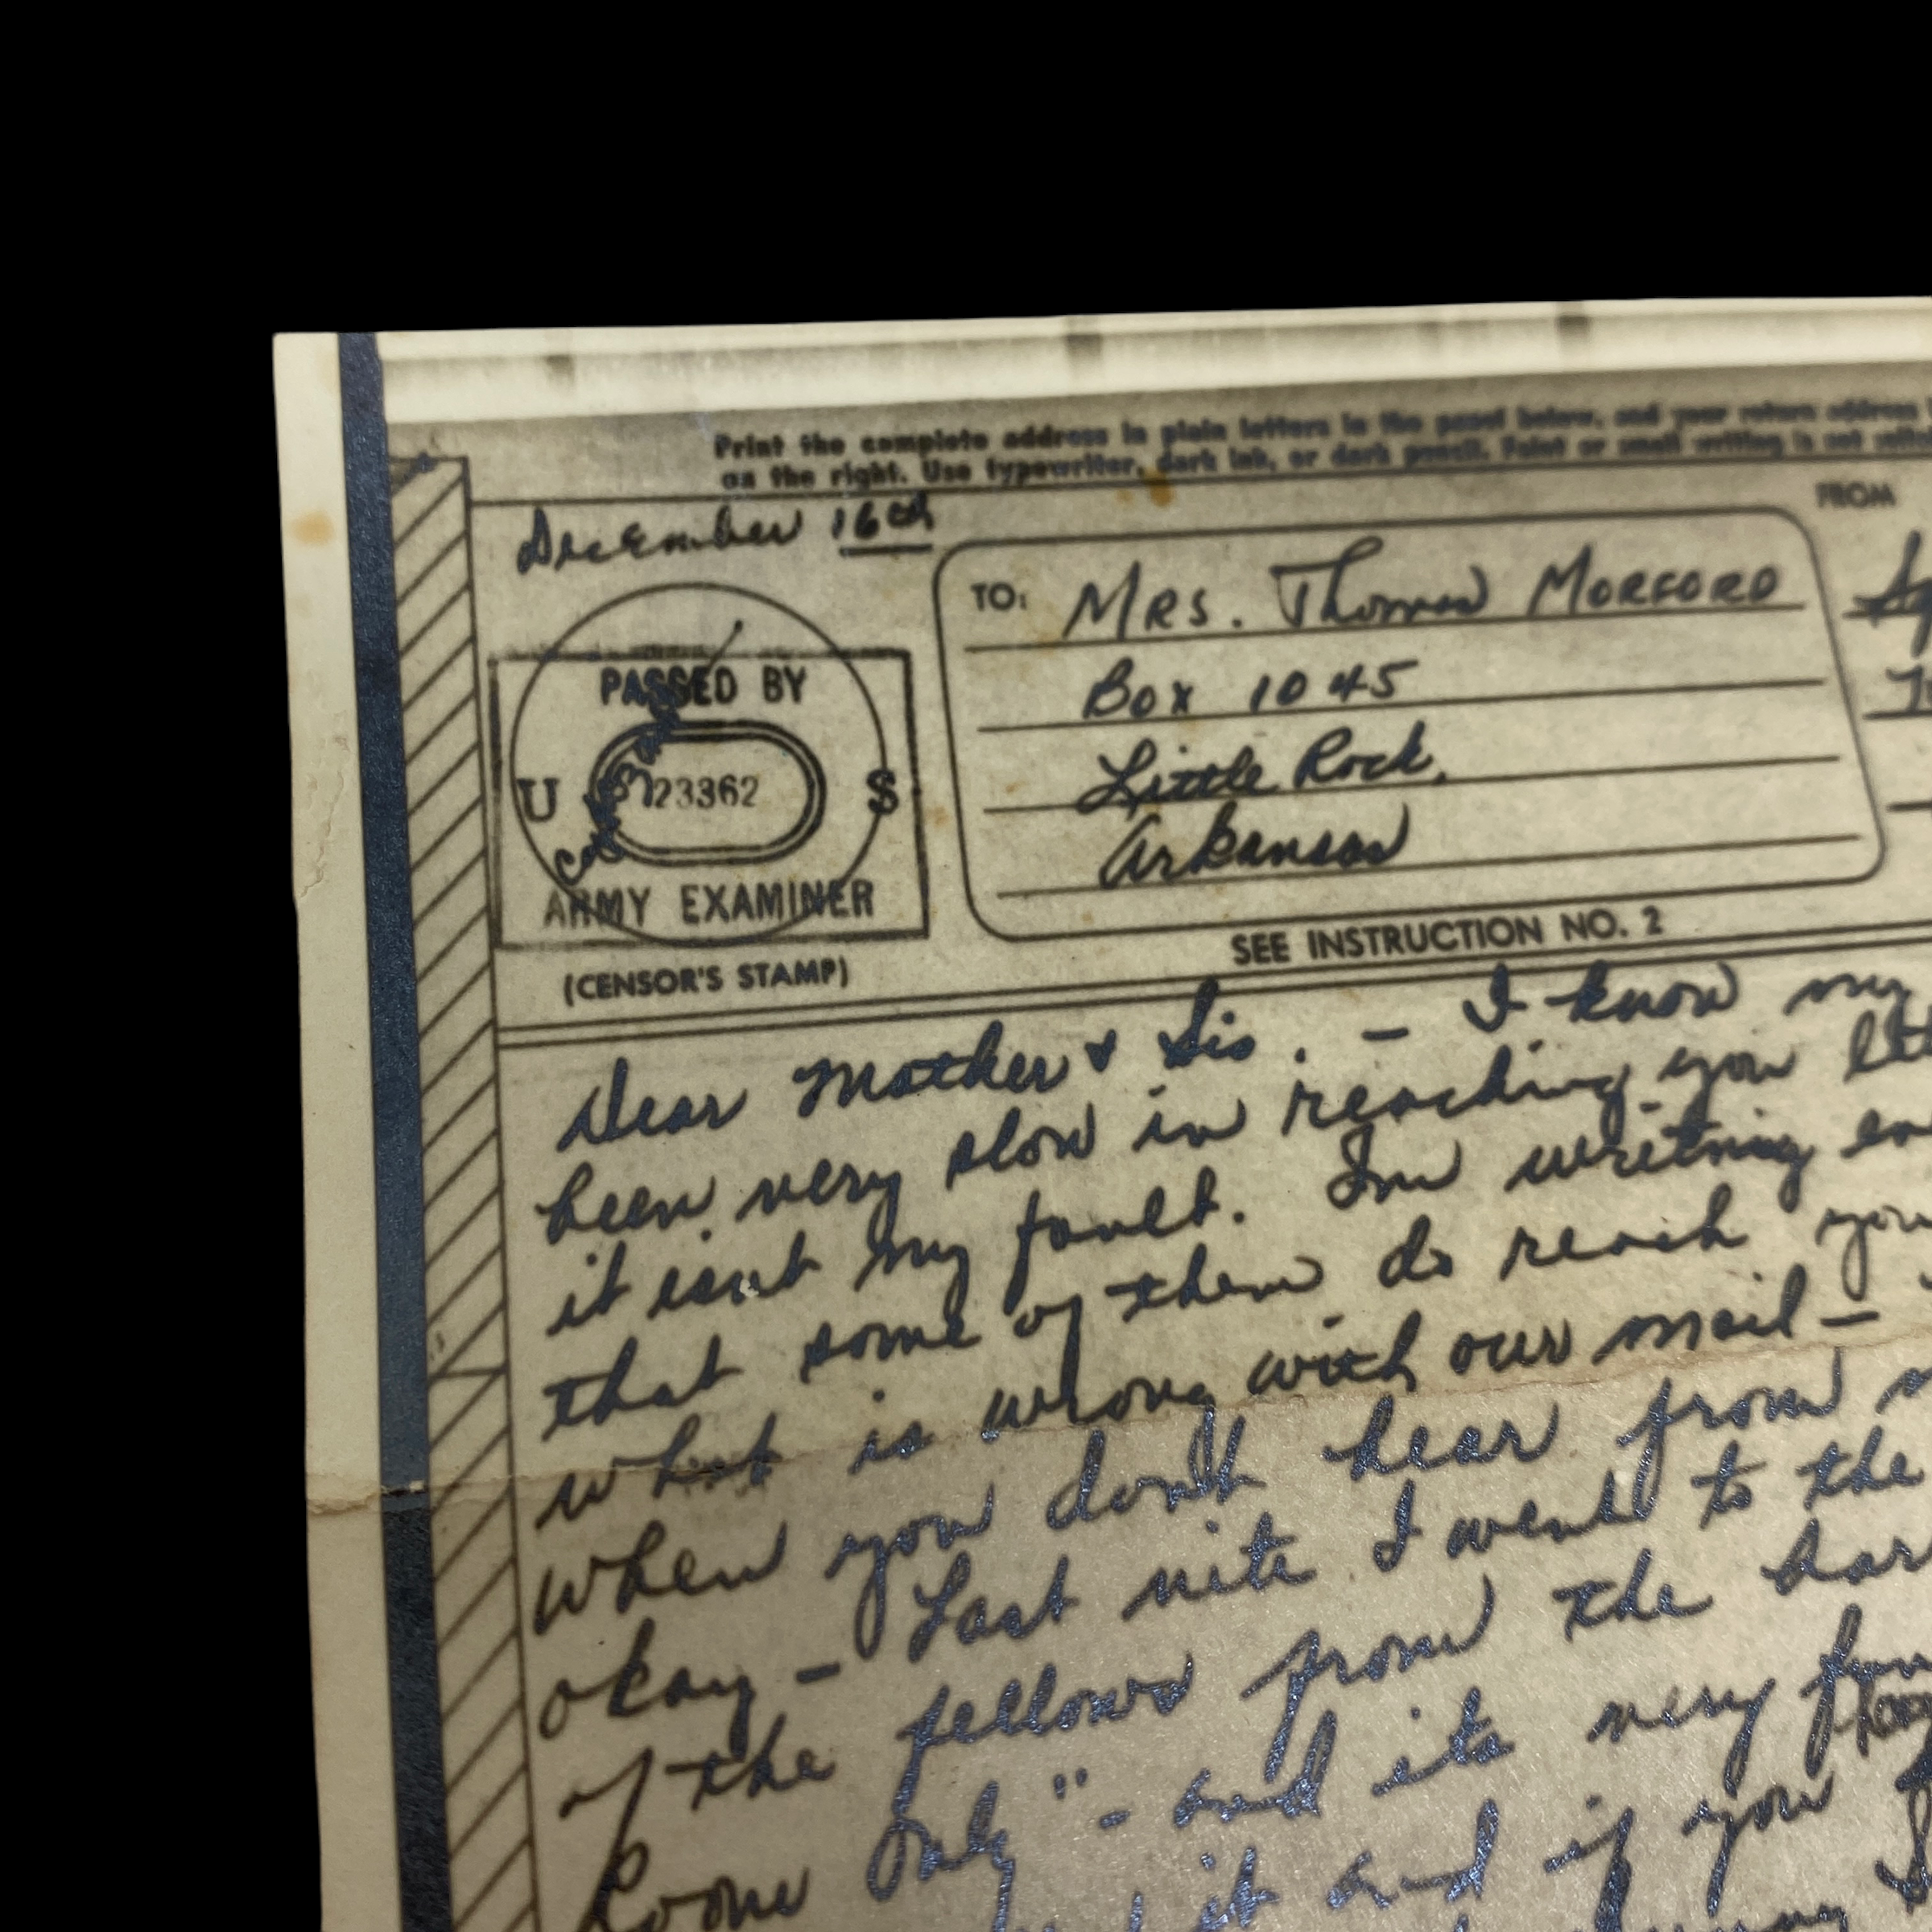 Print the complete address in plain letters in the panel below, and your return address
on the right. Use typewriter, dark ink, or dark pencil. Faint or small writing is not
December 16th
FROM
TO: MRS. Thomas MORFORD
Box 1045
Little Rock,
Arkansas
PASSED BY
U 23362 S
ARMY EXAMINER
(CENSOR'S STAMP)
SEE INSTRUCTION NO. 2
Dear Mother & Sis. - I know my
been very slow in reaching you
it isnt my fault. Im writing
that some of them do reach you
what is wrong with our mail -
when you don't hear from
okay - Last nite I went to the
of the fellows from the
Room Only" - and its very
it and if you